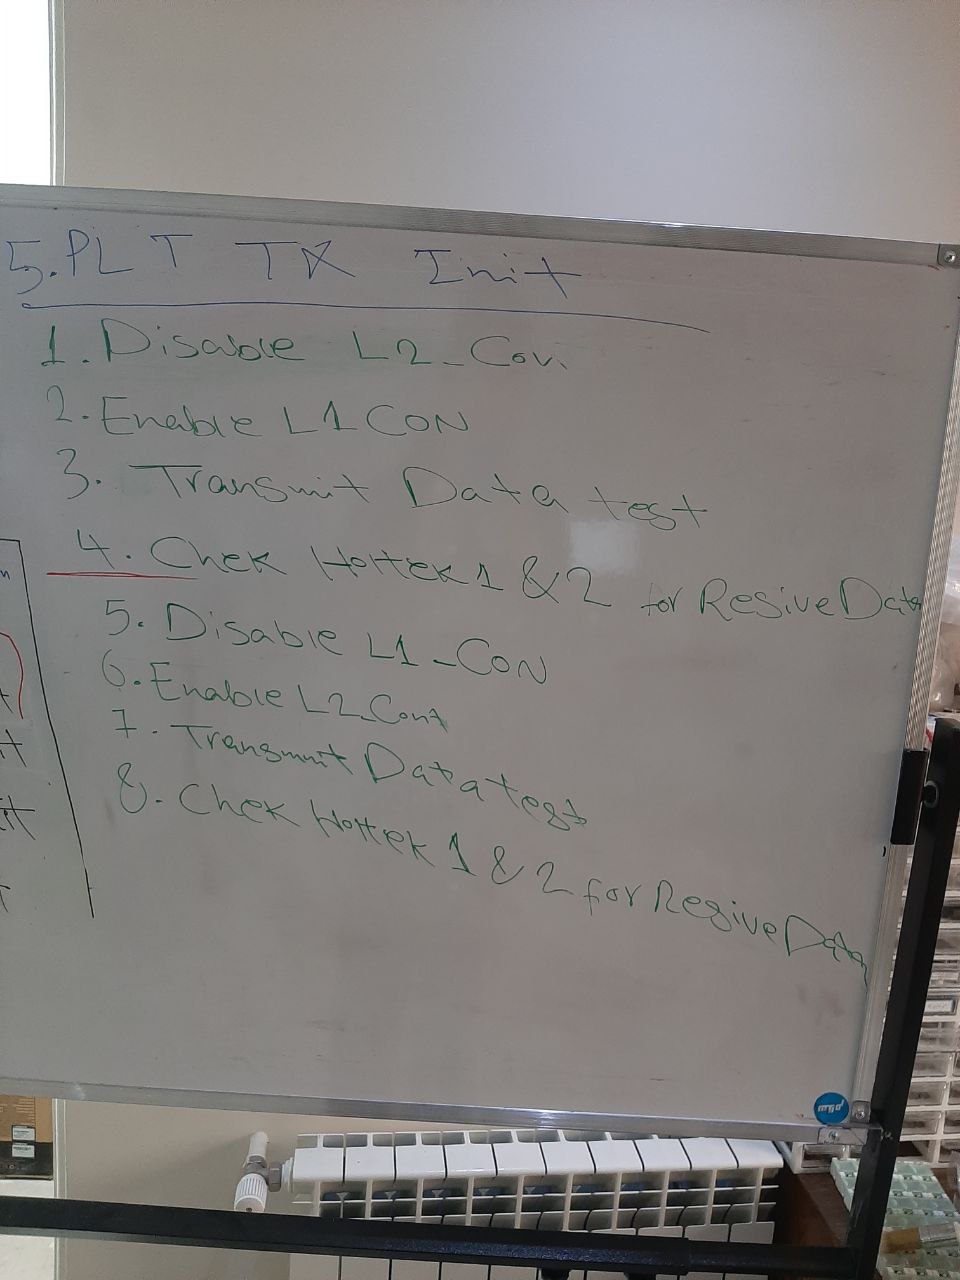 5. PLT TX Init
1. Disable L2_Cov.
2. Enable L1 CON
3. Transmit Data test
4. Chek Holtek 1 & 2 for Resive Data
5. Disable L1_CON
6. Enable L2_Cont
7. Transmit Data test
8. Chek Holtek 1 & 2 for Resive Data